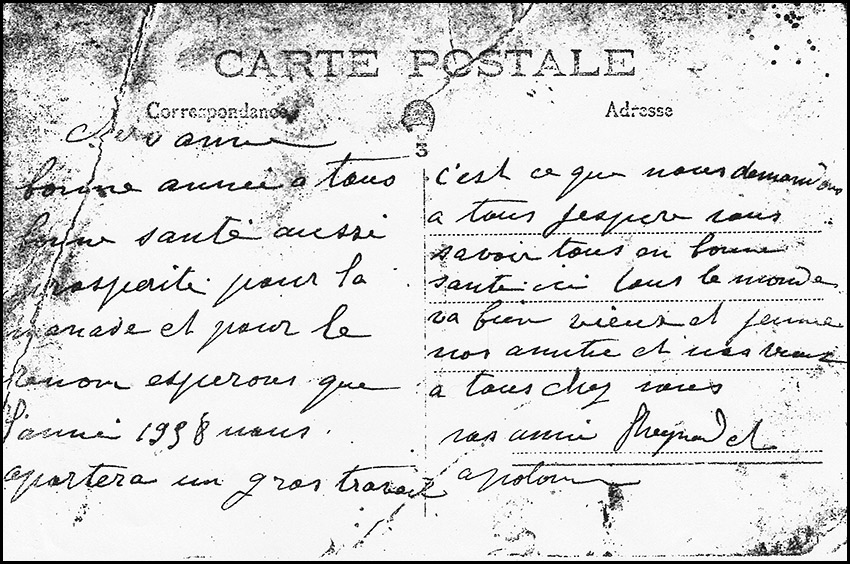 CARTE POSTALE
Correspondance
Adresse
3
bonne année a tous
bonne santé aussi
prosperité pour la
manade et pour le
renom esperons que
l'année 1938 nous
aportera un gros travail
c'est ce que nous demandons
a tous j'espere vous
savoir tous en bonne
santé ici tous le monde
va bien vieux et jeune
nos amitie et nos vœux
a tous chez vous
vos amie et